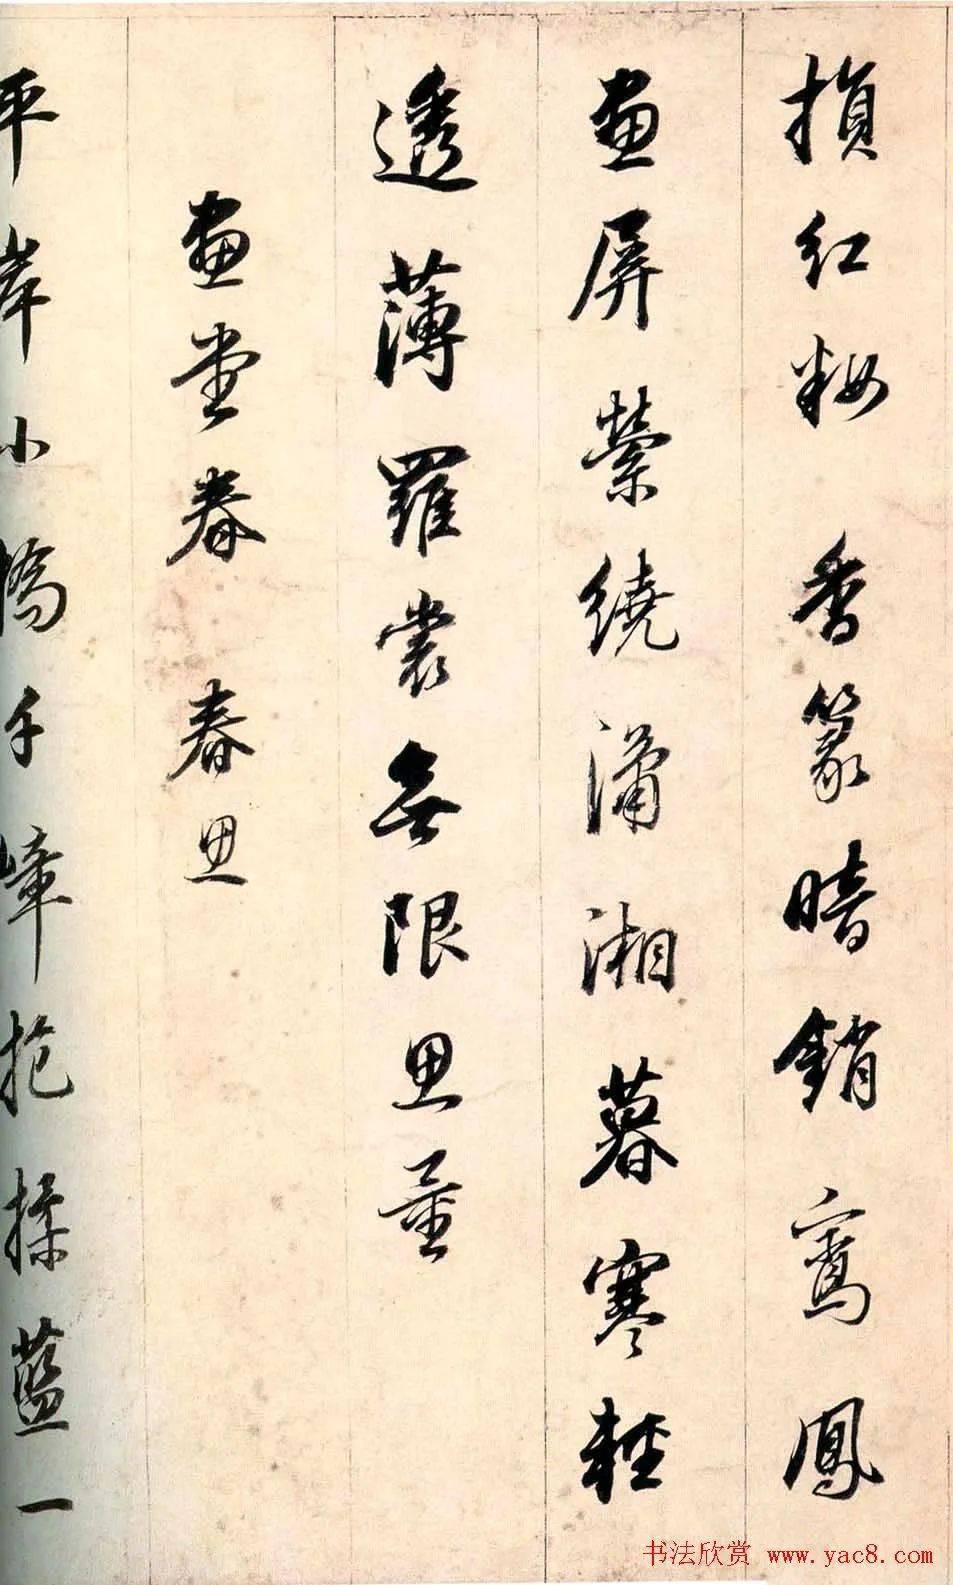 損紅粧香篆暗銷鸞鳳
畫屏縈繞瀟湘暮寒輕
透薄羅裳無限思量
畫堂春春思
平岸小橋千嶂抱揉藍一
书法欣赏 www.yac8.com